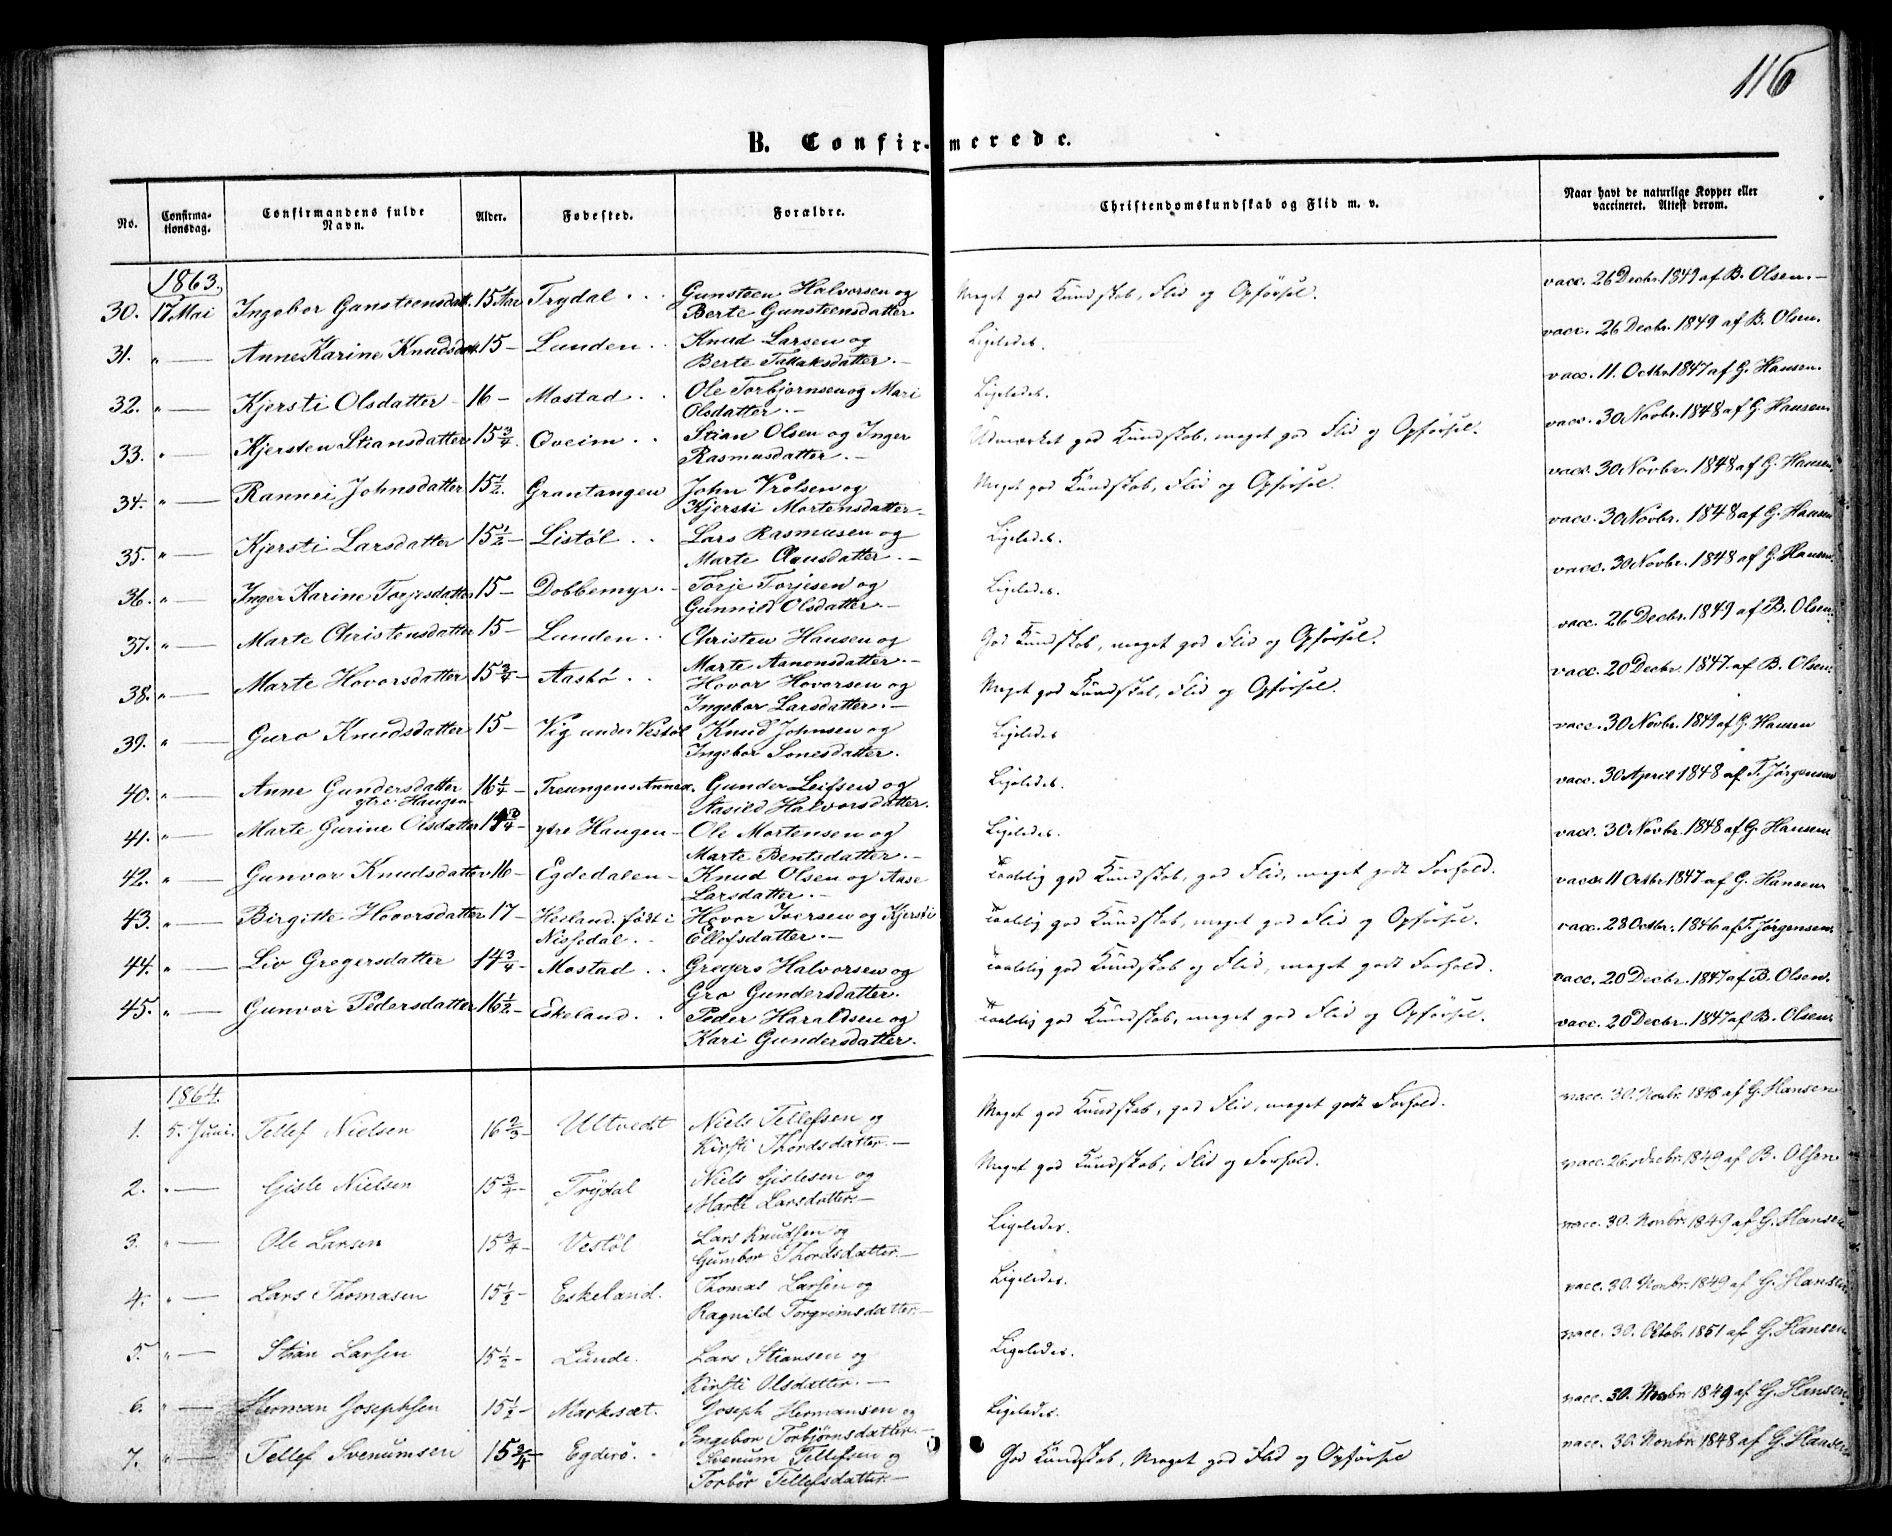 116
B. Confirmerede.
No. Confirmationsdag. Confirmandens fulde Navn. Alder. Fødested. Forældre. Christendomskundskab og Flid m. v. Naar havt de naturlige Kopper eller vaccineret. Attest derom.
1863.
30. 17 Mai Ingebor Gunsteensdatt. 15 Aar Trydal . . Gunsteen Halvorsen og Berte Gunsteensdatter Meget god Kundskab, Flid og Opførsel. vacc. 26 Decbr. 1849 af B. Olsen.—
31. „ — Anne Karine Knudsdatt. 15 — Lunden . . Knud Larsen og Berte Tallaksdatter.— Ligeledes. vacc. 26 Decbr. 1849 af B. Olsen.
32. „ — Kjersti Olsdatter 16 — Mostad . . Ole Torbjørnsen og Mari Olsdatter.— Ligeledes. vacc. 11. Octbr 1847 af G. Hansen.
33. „ — Kjersten Stiansdatter 15 3/4. Oveim . . Stian Olsen og Inger Rasmusdatter.— Udmærket god Kundskab, meget god Flid og Opførsel. vacc. 30 Novbr. 1848 af G. Hansen
34. „ — Rannei Johnsdatter 15 1/2. Grantangen John Vrolsen og Kjersti Mortensdatter— Meget god Kundskab, Flid og Opførsel. vacc. 30 Novbr. 1848 af G. Hansen
35. „ — Kjersti Larsdatter 15 1/2 — Listøl . . Lars Rasmusen og Marte Clausdatter.— Ligeledes. vacc. 30 Novbr. 1848 af G. Hansen
36. „ — Inger Karine Torjesdatter 15 — Dobbemyr . — Torje Torjesen og Gunnild Olsdatter.— Ligeledes. vacc. 30 Novbr. 1848 af G. Hansen
37. „ — Marte Christensdatter 15 — Lunden . . Christen Hansen og Marte Aanonsdatter.— God Kundskab, meget god Flid og Opførsel. vacc. 26 Decbr. 1849 af B. Olsen.
38. „ — Marte Hovorsdatter 15 3/4 — Aasbø . . Hovor Hovorsen og Ingebor Larsdatter.— Meget god Kundskab, Flid og Opførsel. vacc. 20 Decbr. 1847 af B. Olsen.
39. „ — Guro Knudsdatter 15 — Vig under Vestøl Knud Johnsen og Ingebor Sonesdatter. Ligeledes vacc. 30 Novbr. 1849 af G. Hansen
40. „ — Anne Gundersdatter 16 1/4 — Treungens Annex. Gunder Leifsen og Aasild Halvorsdatter. Ligeledes. vacc. 30 April 1848 af T. Jørgensen
ytre Haugen
41. „ — Marte Gurine Olsdatter 14 3/4 — ytre Haugen — Ole Mortensen og Marte Bentsdatter.— Ligeledes. vacc. 30 Novbr. 1848 af G. Hansen
42. „ — Gunvor Knudsdatter 16 — Egdedalen — Knud Olsen og Anse Larsdatter.— Taalelig god Kundskab, god Flid, meget godt Forhold. vacc. 11 Octbr 1847 af G. Hansen
43. „ — Birgitte Hovorsdatter 17 — Heiland. født i Nissedal . . Hovor Iversen og Kjersti Ellefsdatter.— Taalelig god Kundskab, meget god Flid og Opførsel. vacc. 28 Octbr. 1846 af T. Jørgensen.
44. „ — Liv Gregersdatter 14 3/4 — Mostad . . Gregers Halvorsen og Gro Gundersdatter. Taalelig god Kundskab og Flid, meget godt Forhold. vacc. 20 Decbr. 1847 af B. Olsen.
45. „ — Gunvor Pedersdatter 16 1/2 — Eskeland . . Peder Haraldsen og Kari Gundersdatter. Taalelig god Kundskab, meget god Flid og Opførsel. vacc. 20 Decbr. 1847 af B. Olsen.
1864.
1. 5. Juni. Tellef Nielsen 16 2/3 — Ultvedt Niels Tellefsen og Kirsti Thordsdatter.— Meget god Kundskab, god Flid, meget godt Forhold. vacc. 30. Novbr. 1848 af G. Hansen
2. „ — Gisle Nielsen 15 3/4 — Trydal Niels Gislesen og Marte Larsdatter.— Meget god Kundskab, Flid og Forhold. vacc. 26. Decbr. 1849 af B. Olsen
3. „ — Ole Larsen 15 3/4 — Vestøl Lars Knudsen og Gumbor Thordsdatter.— Ligeledes. vacc. 30. Novbr. 1849 af G. Hansen
4. „ — Lars Thomasen 15 1/2 — Eskeland. Thomas Larsen og Ragnild Torgrimsdatter.— Ligeledes. vacc. 30. Novbr. 1849 af G. Hansen
5. „ — Stian Larsen 15 1/2 — Lunde. Lars Stiansen og Kirsti Olsdatter.— Ligeledes. vacc. 30. Oktob. 1851 af G. Hansen
6. „ — Herman Josephsen 15 1/2 — Marksæt. Joseph Hermansen og Ingebor Torbjørnsdatter.— Ligeledes. vacc. 30. Novbr. 1849 af G. Hansen.
7. „ — Tellef Svenumsen 15 3/4 — Egderö. . Svenum Tellefsen og Torbør Tellefsdatter.— God Kundskab, Meget god Flid og Opførsel vacc. 30. Novbr. 1848 af G. Hansen